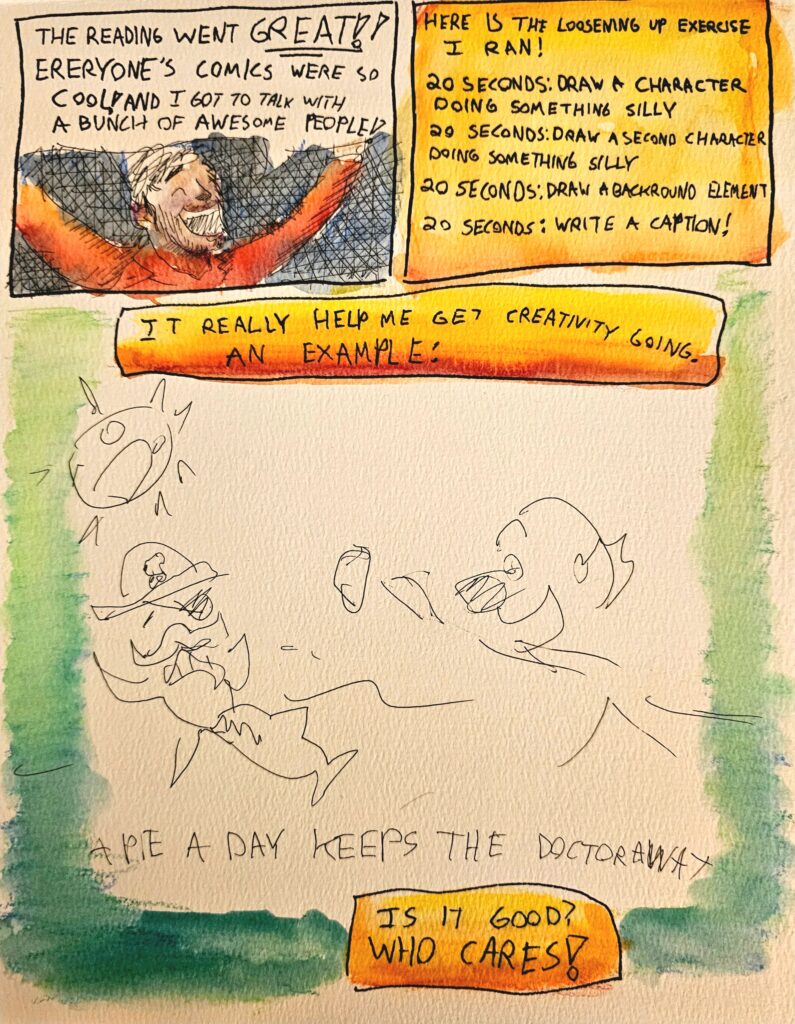 THE READING WENT GREAT!!
ERERYONE'S COMICS WERE SO
COOL! AND I GOT TO TALK WITH
A BUNCH OF AWESOME PEOPLE!
HERE IS THE LOOSENING UP EXERCISE
I RAN!
20 SECONDS: DRAW A CHARACTER
DOING SOMETHING SILLY
20 SECONDS: DRAW A SECOND CHARACTER
DOING SOMETHING SILLY
20 SECONDS: DRAW A BACKROUND ELEMENT
20 SECONDS: WRITE A CAPTION!
IT REALLY HELP ME GET CREATIVITY GOING.
AN EXAMPLE:
A PIE A DAY KEEPS THE DOCTOR AWAY
IS IT GOOD?
WHO CARES!